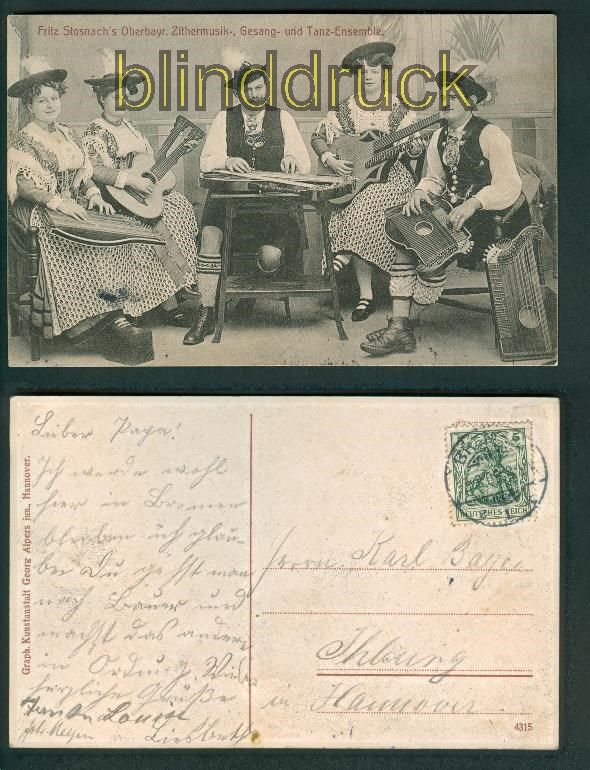 Fritz Stosnach's Oberbayr. Zithermusik-, Gesang- und Tanz-Ensemble.
blinddruck
Graph. Kunstanstalt Georg Alpers jun., Hannover.
Lieber Papa!
Ich werde wohl
hier in Bremen
bleiben ich glau-
be Du gehst man
nach Bauer und
machst das andere
in Ordnung. Viele
herzliche Grüße
Tante Louise
Liesbeth
5
DEUTSCHES REICH
Herrn Karl Bayer
in Hannover
4315